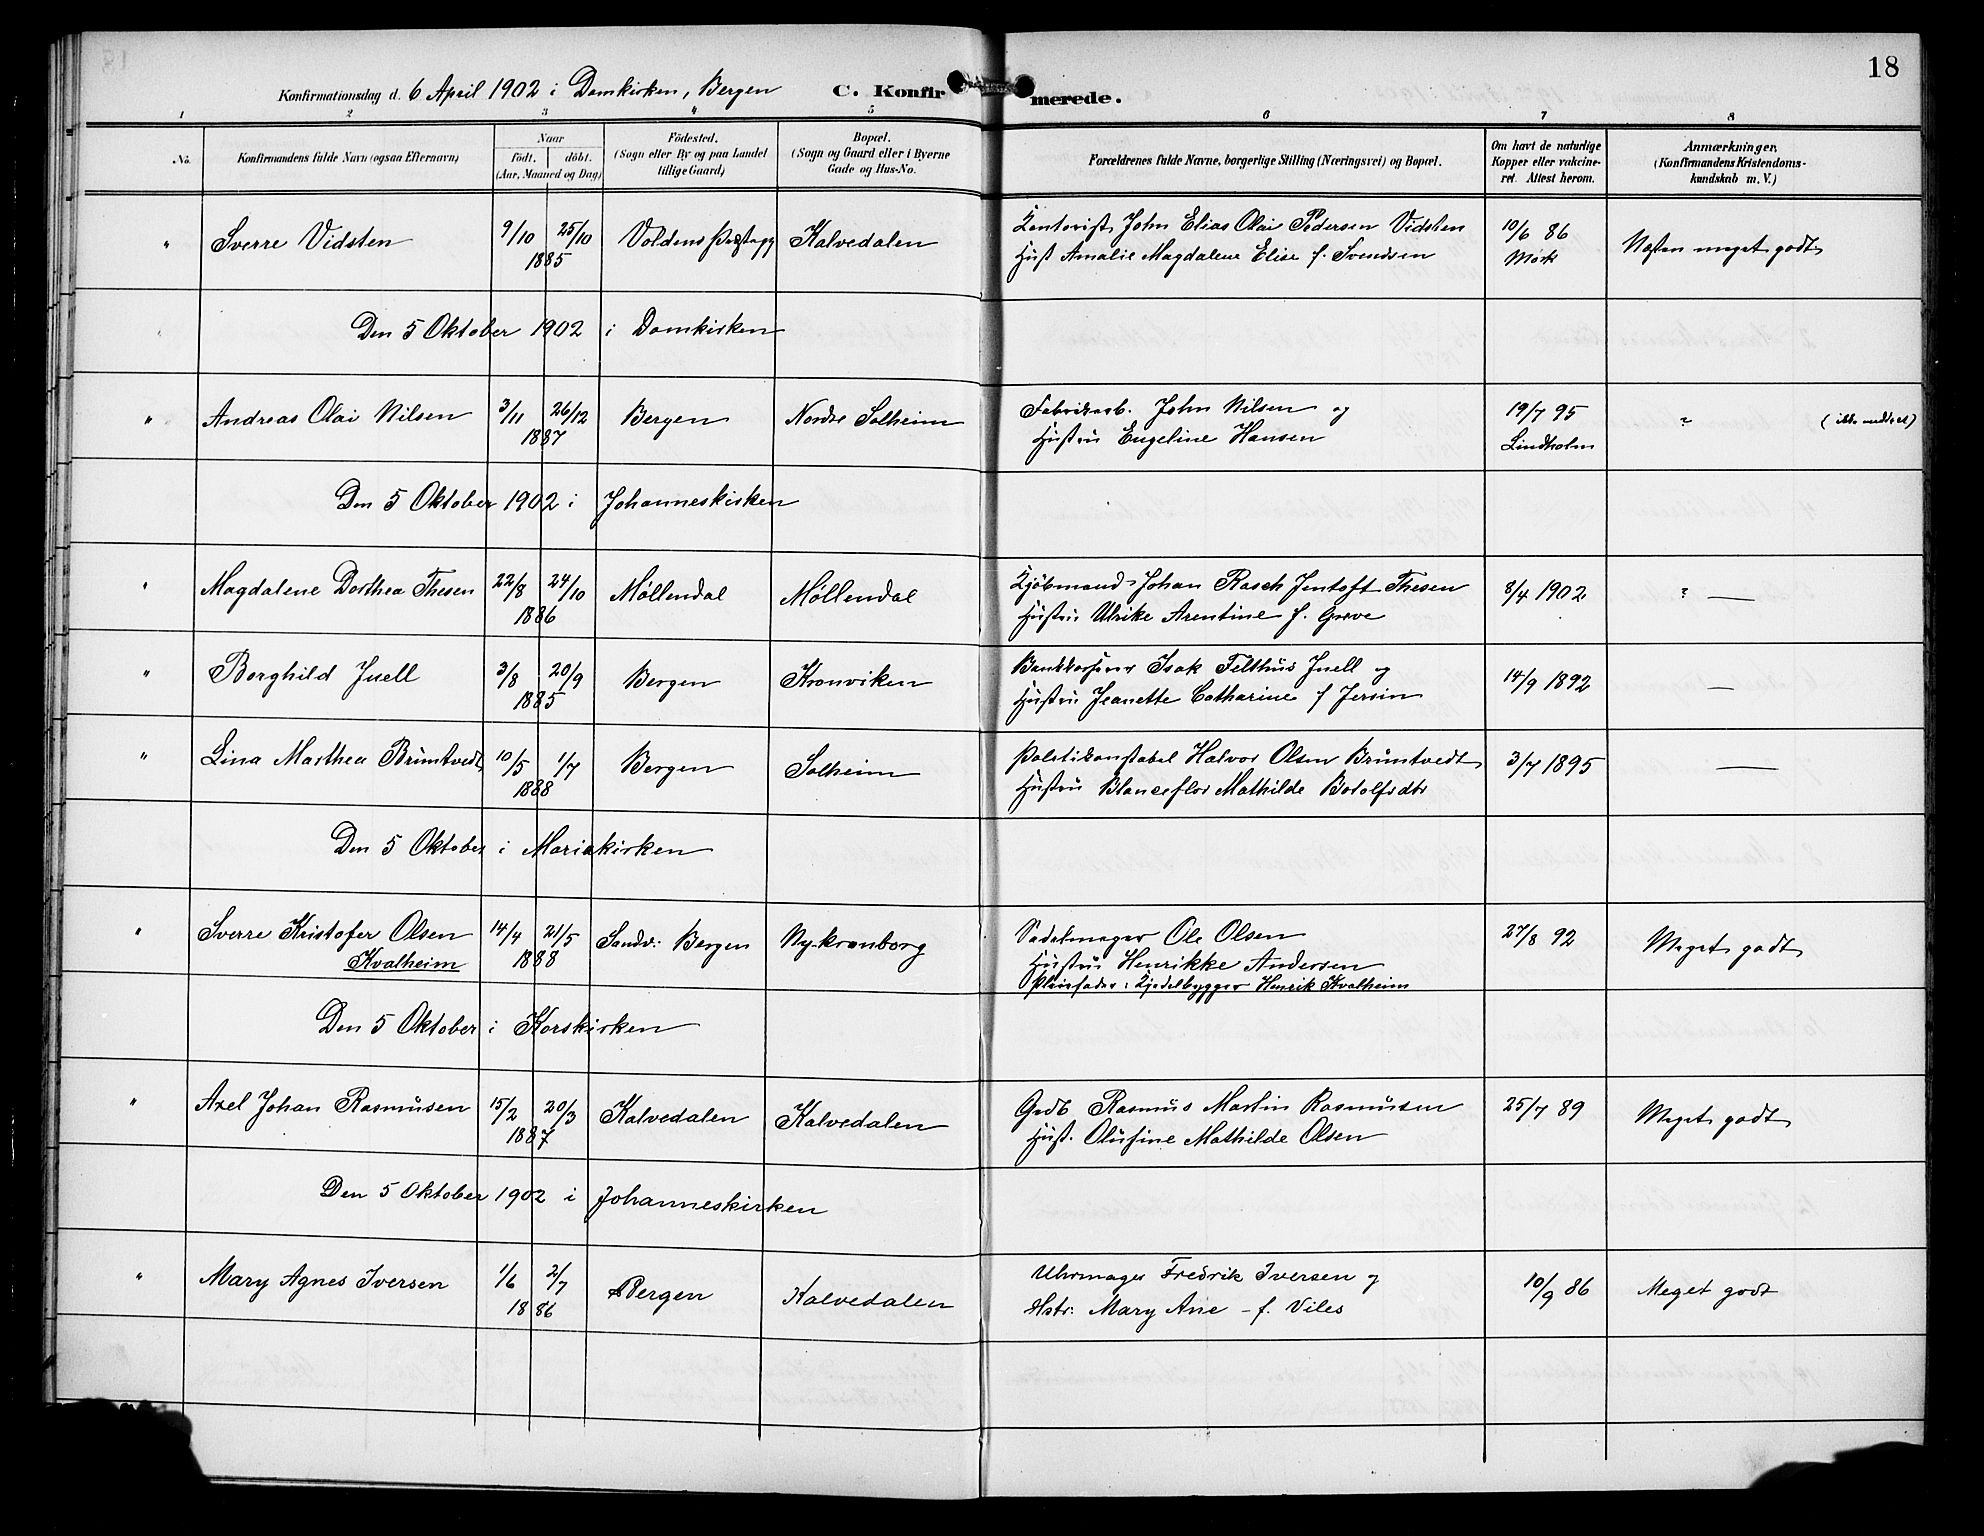 18
Konfirmationsdag d. 6 April 1902 i Domkirken, Bergen C. Konfirmerede.
1 2 3 4 5 6 7 8
No. Konfirmandens fulde Navn (ogsaa Efternavn) Naar födt. döbt. (Aar, Maaned og Dag) Födested. (Sogn eller By og paa Landet tillige Gaard) Bopæl. (Sogn og Gaard eller i Byerne Gade og Hus-No. Forældrenes fulde Navne, borgerlige Stilling (Næringsvei) og Bopæl. Om havt de naturlige Kopper eller vakcineret. Attest herom. Anmærkninger, (Konfirmandens Kristendomskundskab m. V.)
" Sverre Vidsten 9/10 25/10 1885 Voldens Præstegj Kalvedalen Kontorist John Elias Olai Pedersen Vidsten 10/6 86 Næsten meget godt
Hust Amalie Magdalene Elise f. Svendsen Mørk
Den 5 Oktober 1902 i Domkirken
" Andreas Olai Nilsen 3/11 26/12 1887 Bergen Nordre Solheim Fabrikarb. John Nilsen og 19/7 95 ? (ikke meddelt)
Hustru Engeline Hansen Lindholm
Den 5 Oktober 1902 i Johanneskirken
" Magdalene Dorthea Thesen 22/8 24/10 1886 Møllendal Møllendal Kjøbmand Johan Rasch Jentoft Thesen 8/4 1902 ? —
Hustru Ulrike Arentine f. Greve
" Borghild Juell 3/8 20/9 1885 Bergen Kronviken Bankkasserer Isak Felthus Juell og 14/9 1892 —
Hustru Jeanette Catharine f Jersin
" Lina Marthea Brüntvedt 10/5 1/7 1888 Bergen Solheim Politikonstabel Halvor Olsen Brüntvedt 3/7 1895 —
Hustru Blanceflor Mathilde Botolfsdtr
Den 5 Oktober i Mariakirken
" Sverre Kristofer Olsen 14/4 21/5 1888 Sandv: Bergen Ny-kronborg Sadelmager Ole Olsen 27/8 92 Meget godt
Kvalheim Hustru Henrikke Andersen
Pleiefader: Kjedelbygger Henrik Kvalheim
Den 5 Oktober i Korskirken
" Axel Johan Rasmüsen 15/2 20/3 1887 Kalvedalen Kalvedalen Grdb Rasmus Martin Rasmüsen 25/7 89 Meget godt
Hust. Olüfine Mathilde Olsen
Den 5 Oktober 1902 i Johanneskirken
" Mary Agnes Iversen 1/6 2/7 1886 Bergen Kalvedalen Uhrmager Fredrik Iversen og 10/9 86 Meget godt
Hstr: Mary Ane - f. Viles